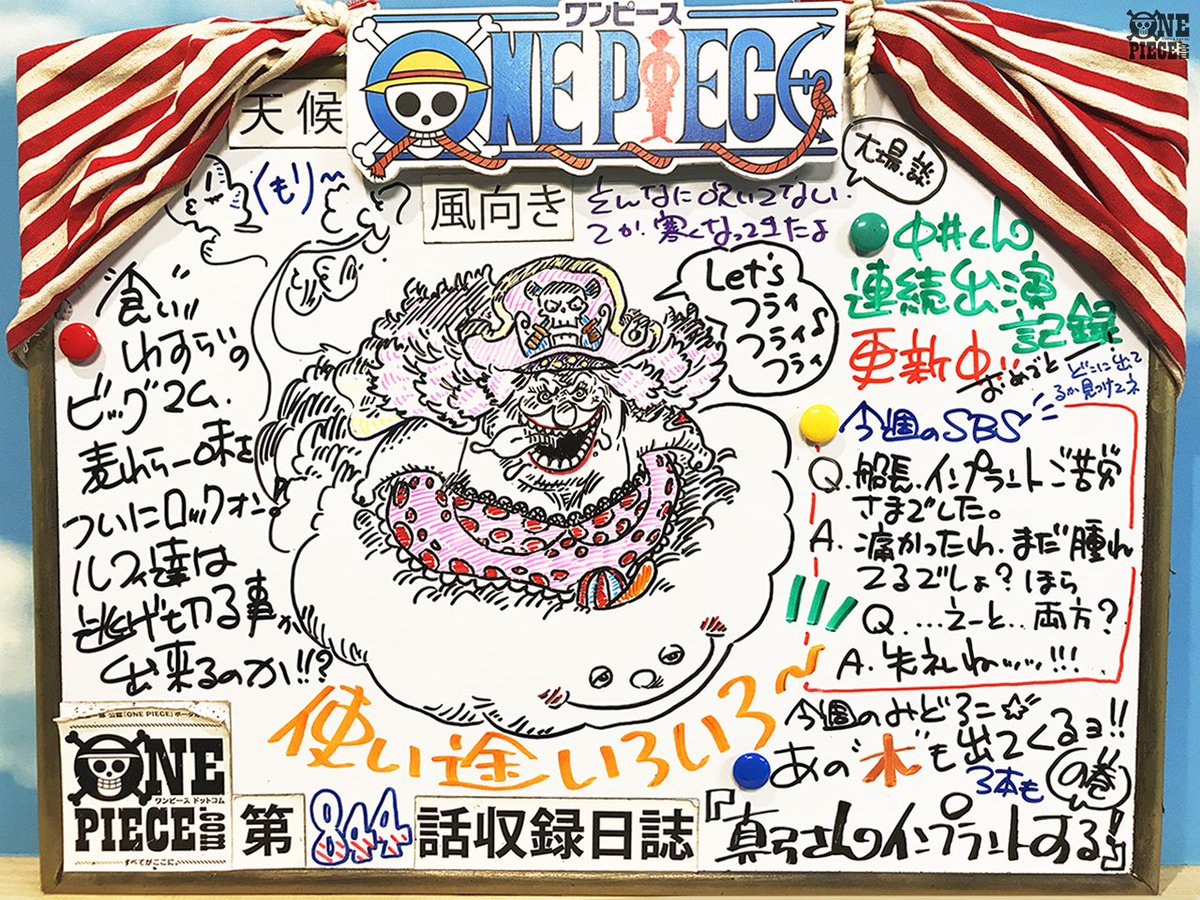 ワンピース
ONE PIECE
ONE
PIECE.com
天候
くもり〜
風向き
そんなに吹いてない
てか、寒くなってきたよ
大場談
中井くん
連続出演
記録
更新中!!
おめでとー
どこに出て
るか見つけてネ
"食い"
わずらいの
ビッグマム、
麦わら一味を
ついにロックオン。
ルフィ達は
逃げ切る事が
出来るのか!!?
Let's
フライ
フライ♪
フライ
今週のSBS
Q. 船長、インプラントご苦労
さまでした。
A. 痛かったわ、まだ腫れ
てるでしょ?ほら
Q. …えーと…両方?
A. 失礼ね……!!!
使い途いろいろ〜!!!
今週のみどころ☆
あの"木"も出てくるョ!!
3本も
公認「ONE PIECE」ポータル
ONE
ワンピース ドットコム
PIECE.com
すべてがここに。
第844話収録日誌
『真弓さんのインプラントする!』
の巻